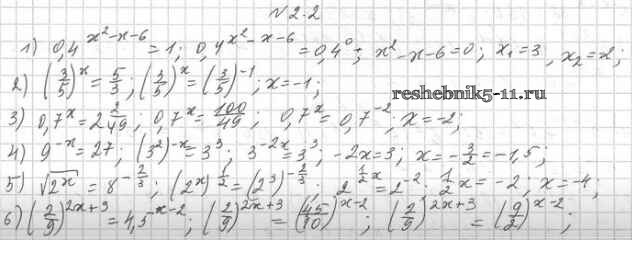 №2.2
1) 0,4^{x²-x-6} = 1; 0,4^{x²-x-6} = 0,4^0; x²-x-6=0; x₁=3, x₂=2;
2) (3/5)^x = 5/3; (3/5)^x = (3/5)^{-1}; x=-1;
reshebnik5-11.ru
3) 0,7^x = 2 2/49; 0,7^x = 100/49; 0,7^x = 0,7^{-2}; x=-2;
4) 9^{-x} = 27; (3²)^{-x} = 3³; 3^{-2x} = 3³; -2x=3; x = -3/2 = -1,5;
5) √(2^x) = 8^{-2/3}; (2^x)^{1/2} = (2³)^{-2/3}; 2^{1/2 x} = 2^{-2}; 1/2 x = -2; x=-4;
6) (2/9)^{2x+3} = 4,5^{x-2}; (2/9)^{2x+3} = (45/10)^{x-2}; (2/9)^{2x+3} = (9/2)^{x-2};